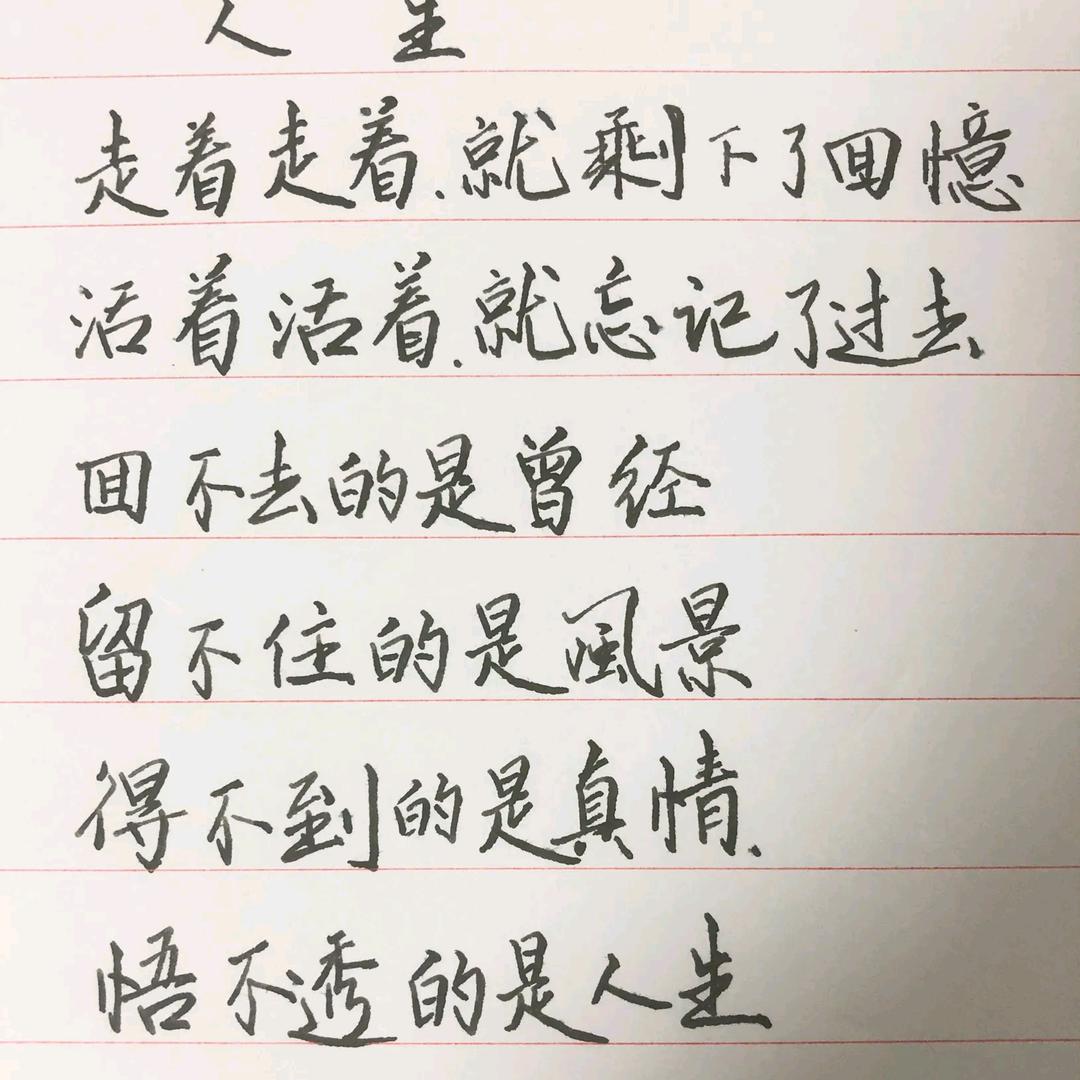 人生
走着走着.就剩下了回憶
活着活着.就忘记了过去
回不去的是曾经
留不住的是風景
得不到的是真情.
悟不透的是人生